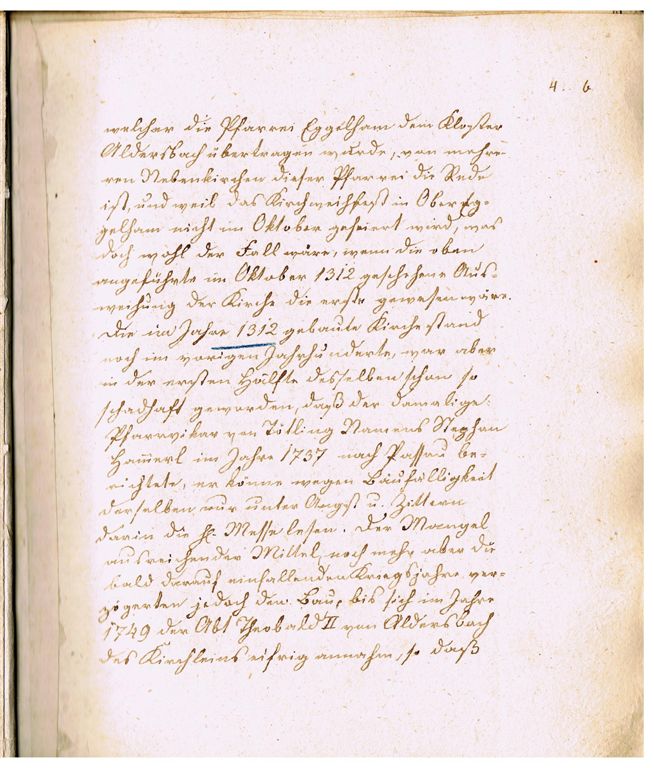 4. 6
welcher die Pfarrei Eggelham dem Kloster
Aldersbach übertragen wurde, von mehre-
ren Nebenkirchen dieser Pfarrei die Rede
ist, und weil das Kirchweihfest in Ober Eg-
gelham nicht im Oktober gefeiert wird, was
doch wohl der Fall wäre, wenn die oben
angeführte im Oktober 1312 geschehene Aus-
weihung der Kirche die erste gewesen wäre.
Die im Jahre 1312 gebaute Kirche stand
noch im vorigen Jahrhunderte, war aber
in der ersten Hälfte desselben schon so
schadhaft geworden, daß der damalige
Pfarrvikar von Tötling Namens Stephan
Ham̅erl im Jahre 1737 nach Passau be-
richtete, er kön̅e wegen Baufälligkeit
derselben nur unter Angst u. Zittern
darin die hl. Messe lesen. Der Mangel
ausreichender Mittel, noch mehr aber die
bald darauf einfallenden Kriegsjahre ver-
zögerten jedoch den Bau, bis sich im Jahre
1749 der Abt Theobald II von Aldersbach
des Kirchleins eifrig annahm, so daß